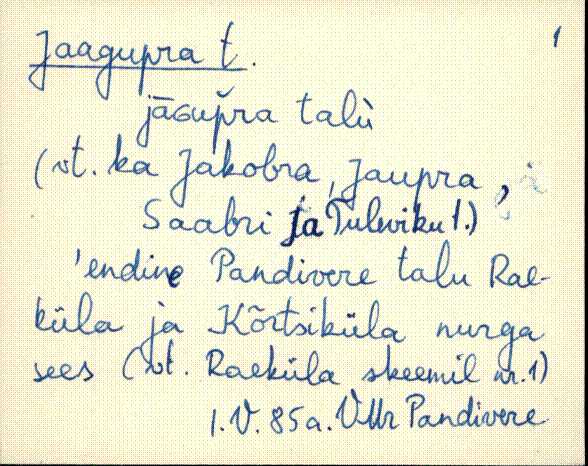 1
Jaagupra t.
jāGup̆ra talù
(vt. ka Jakobra, Jaupra,
Saabri ja Tuleviku 1.)
'endine Pandivere talu Rae-
küla ja Kõrtsiküla nurga
sees (vt. Raeküla skeemil nr. 1)
1. V. 85 a. VMr Pandivere